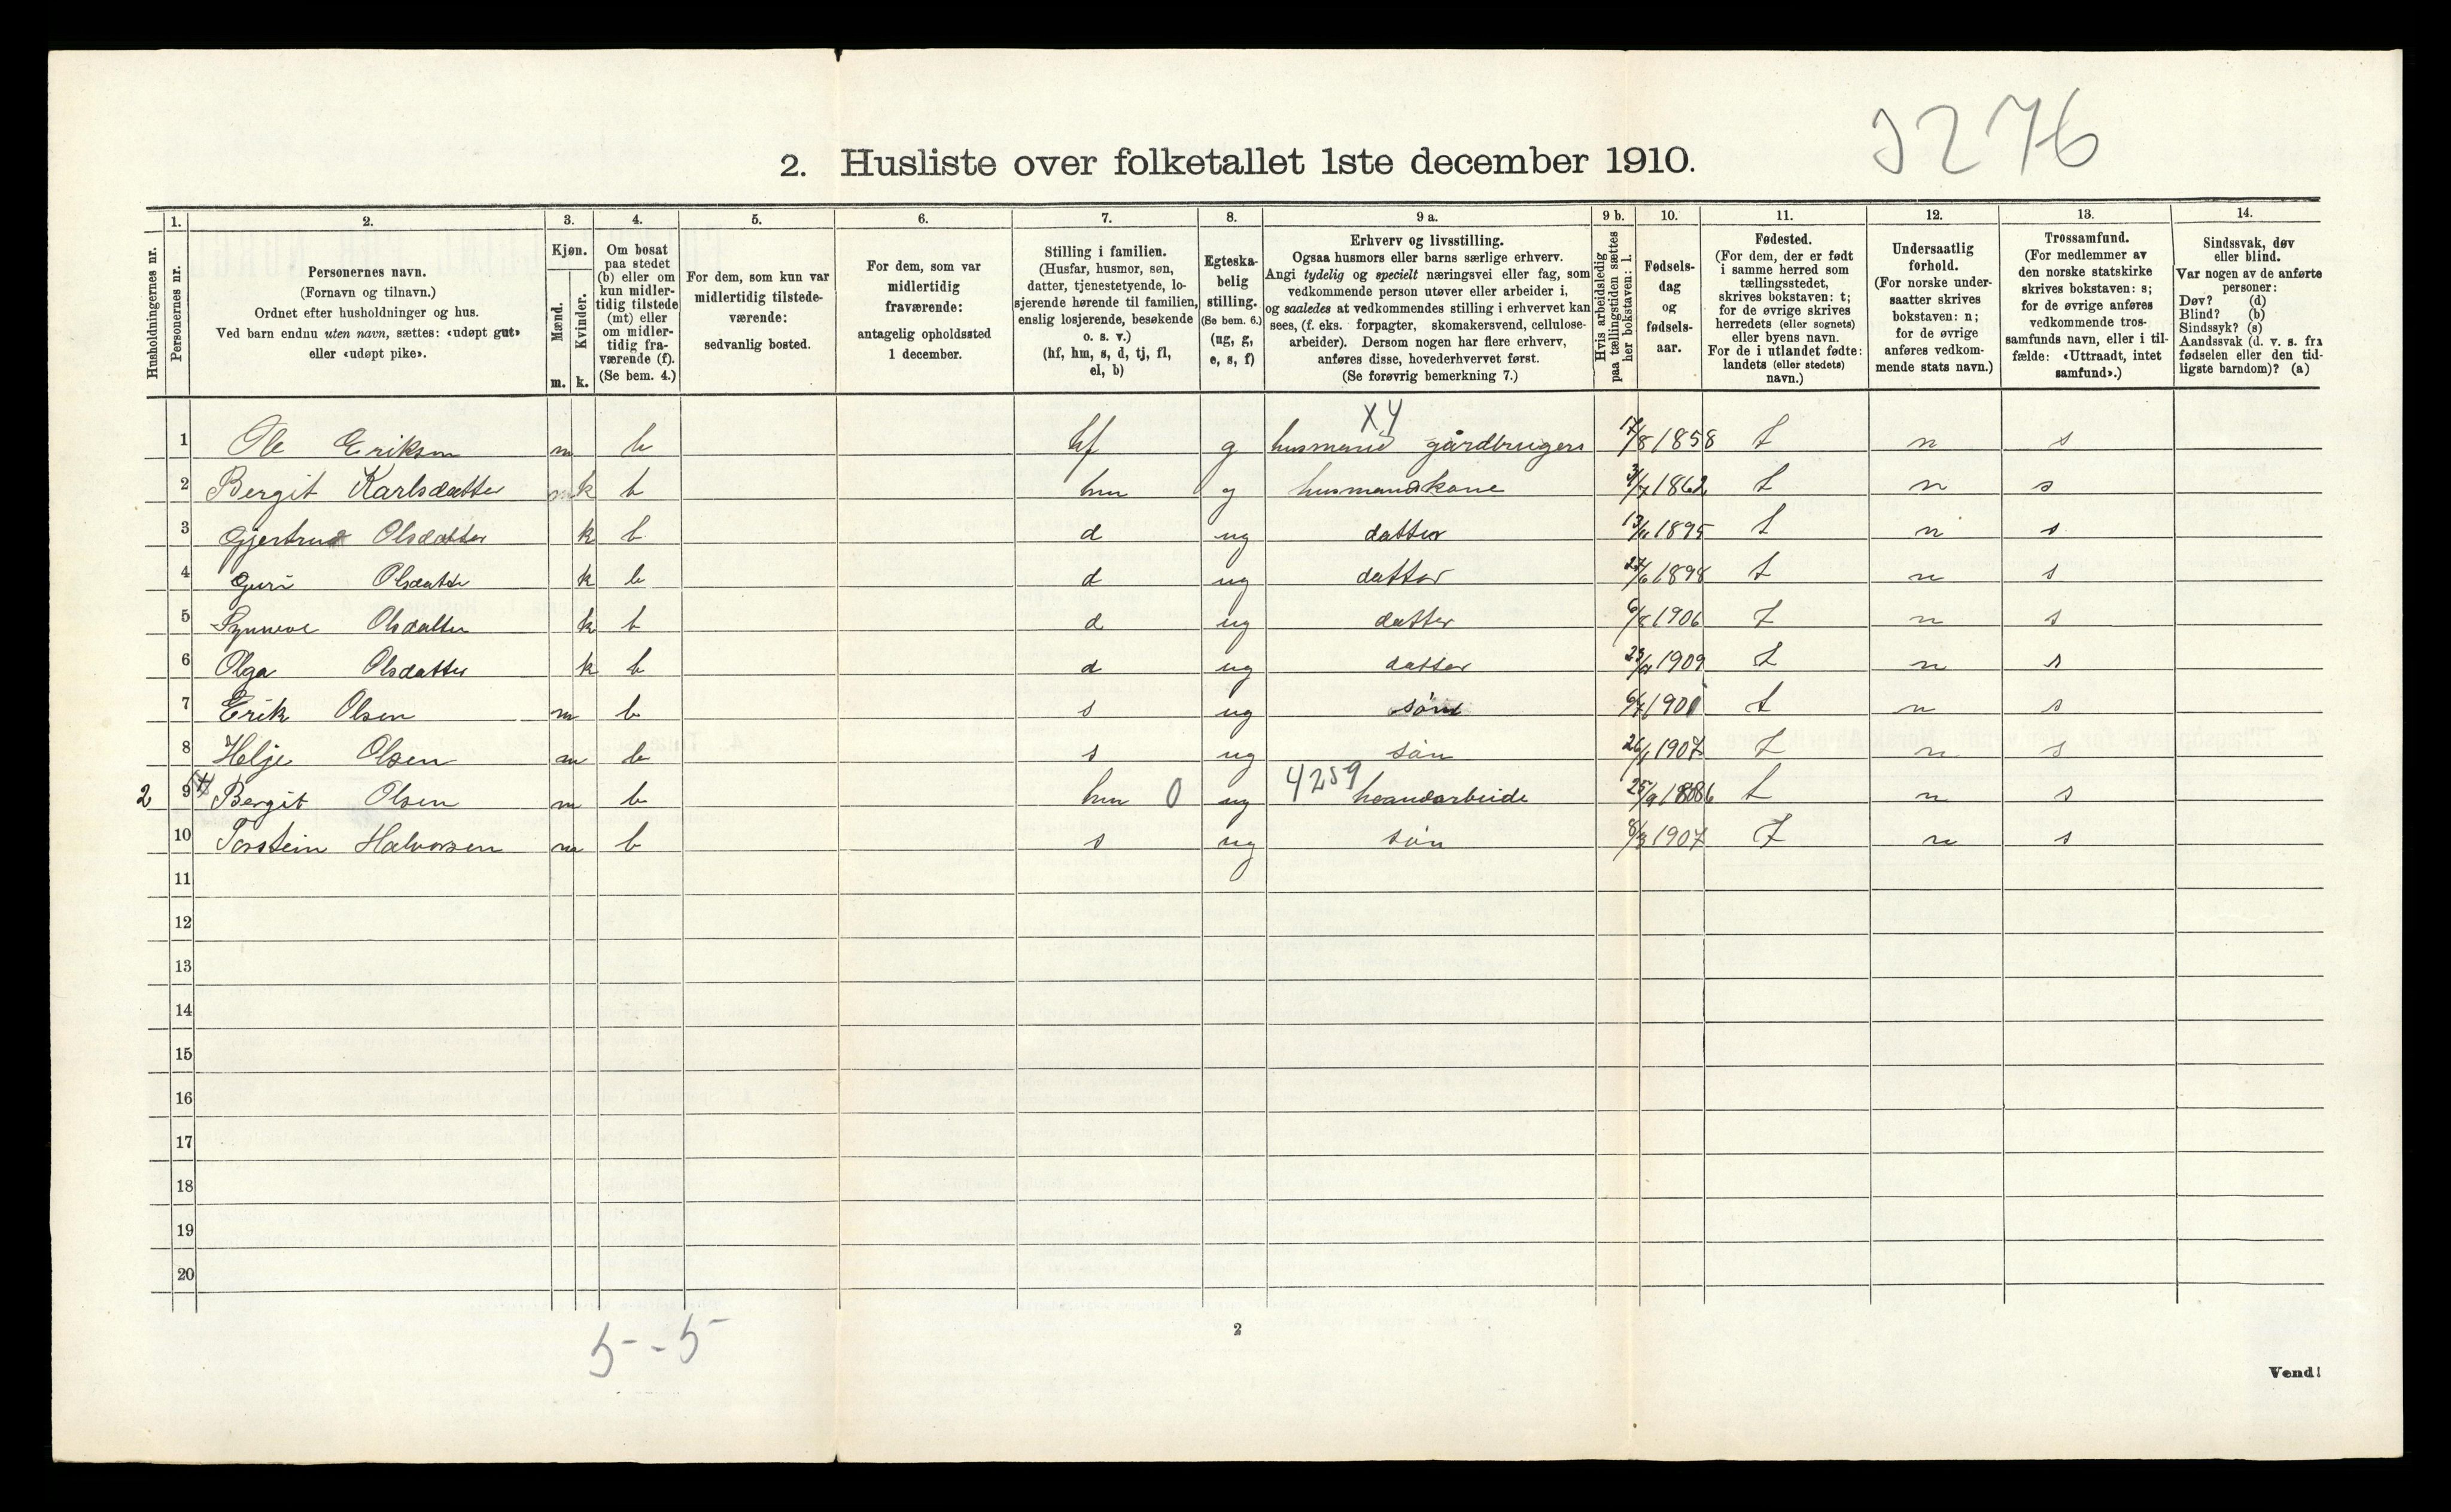 3276
2. Husliste over folketallet 1ste december 1910.
Husholdningernes nr.
1. Personernes nr.
2. Personernes navn.
(Fornavn og tilnavn.)
Ordnet efter husholdninger og hus.
Ved barn endnu uten navn, sættes: «udøpt gut»
eller «udøpt pike».
3. Kjøn.
Mænd. m.
Kvinder. k.
4. Om bosat
paa stedet
(b) eller om
kun midler-
tidig tilstede
(mt) eller
om midler-
tidig fra-
værende (f).
(Se bem. 4.)
5. For dem, som kun var
midlertidig tilstede-
værende:
sedvanlig bosted.
6. For dem, som var
midlertidig
fraværende:
antagelig opholdssted
1 december.
7. Stilling i familien.
(Husfar, husmor, søn,
datter, tjenestetyende, lo-
sjerende hørende til familien,
enslig losjerende, besøkende
o. s. v.)
(hf, hm, s, d, tj, fl,
el, b)
8. Egteska-
belig
stilling.
(Se bem. 6.)
(ug, g,
e, s, f)
9 a. Erhverv og livsstilling.
Ogsaa husmors eller barns særlige erhverv.
Angi tydelig og specielt næringsvei eller fag, som
vedkommende person utøver eller arbeider i,
og saaledes at vedkommendes stilling i erhvervet kan
sees, (f. eks. forpagter, skomakersvend, cellulose-
arbeider). Dersom nogen har flere erhverv,
anføres disse, hovederhvervet først.
(Se forøvrig bemerkning 7.)
9 b. Hvis arbeidsledig
paa tællingstiden sættes
her bokstaven: l.
10. Fødsels-
dag
og
fødsels-
aar.
11. Fødested.
(For dem, der er født
i samme herred som
tællingsstedet,
skrives bokstaven: t;
for de øvrige skrives
herredets (eller sognets)
eller byens navn.
For de i utlandet fødte:
landets (eller stedets)
navn.)
12. Undersaatlig
forhold.
(For norske under-
saatter skrives
bokstaven: n;
for de øvrige
anføres vedkom-
mende stats navn.)
13. Trossamfund.
(For medlemmer av
den norske statskirke
skrives bokstaven: s;
for de øvrige anføres
vedkommende tros-
samfunds navn, eller i til-
fælde: «Uttraadt, intet
samfund».)
14. Sindssvak, døv
eller blind.
Var nogen av de anførte
personer:
Døv? (d)
Blind? (b)
Sindssyk? (s)
Aandssvak (d. v. s. fra
fødselen eller den tid-
ligste barndom)? (a)
X4
1 Ole Eriksen m b hf g husmand gårdbrugers 17/8 1858 t n s
2 Bergit Karlsdatter k b hm g husmandskone 1862 t n s
3 Gjertrud Olsdatter k b d ug datter 1895 t n s
4 Guri Olsdatter k b d ug datter 1898 t n s
5 Synneve Olsdatter k b d ug datter 6/8 1906 t n s
6 Olga Olsdatter k b d ug datter 1909 t n s
7 Erik Olsen m b s ug søn t n s
8 Helje Olsen m b s ug søn 26/1 1907 t n s
4259
2 9 Bergit Olsen m b hm 0 ug haandarbeide 25/9 1886 t n s
10 Torstein Halvorsen m b s ug søn 8/3 1907 t n s
11
12
13
14
15
16
17
18
19
20
5 - 5
2
Vend!